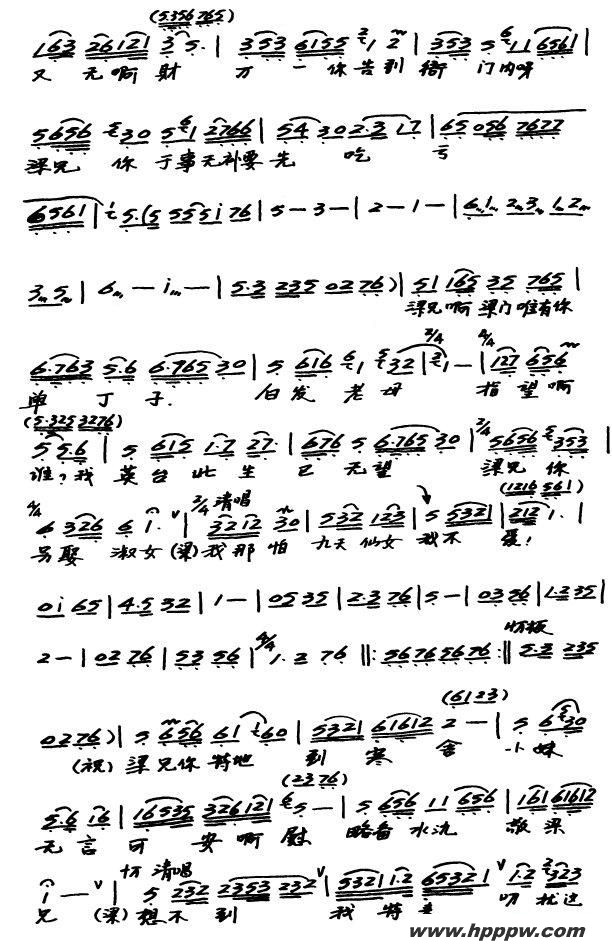 (5.356 765)
163 26121 3 5. | 353 6155 1 2 | 353 5 11 6561 |
又 无啊 财 万 一 你告到 衙 门内呀
5656 30 5 1 2766 | 54 30 2.3 17 | 65 056 7677
梁兄 你 于事无补要先 吃 亏
6561 | 5.(5 555i 76 | 5 - 3 - | 2 - 1 - | 6.1. 2.3. 1.2.
3.5. | 6 - i - | 5.3 235 0276) | 51 165 35 765 |
梁兄啊 梁门唯有你
2/4 4/4
6.763 5.6 6.765 30 | 5 616 1 32 | 1 - | 127 656
单 丁 子. 白 发 老 母 指 望啊
(5.325 3276)
5 5.6 | 5 615 1.7 27. | 676 5 6.765 30 | 2/4 5656 353 |
谁? 我 英台 此 生 已 无 望 梁兄 你
4/4 6 326 6 1. | 2/4 清唱 3212 30 | 532 123 | 5 5321 | 212 1. |
(1216 561)
另娶 淑女 (梁) 我那 怕 九天 仙女 我不 爱!
0i 65 | 4.5 32 | 1 - | 05 35 | 2.3 76 | 5 - | 03 56 | 1.235 |
2 - | 02 76 | 53 56 | 4/4 1. 2 76 ‖: 5676 5676 :‖ 5.3 235
0276) | 5 656 61 60 | 5321 61612 2 - | 5 6 30
(6123)
(祝) 梁兄你 特地 到 寒 舍 小 妹
(23 76)
5.6 16 | 16535 326121 5 - | 5 656 11 656 | 161 61612
无 言 可 安啊 慰 略备 水 酒 敬 梁
i - | 清唱 5 232 2353 232 | 5321 1.2 65321 | 1.2 323
兄 (梁) 想 不 到 我 特 来 叨 扰这
www.hpppw.com